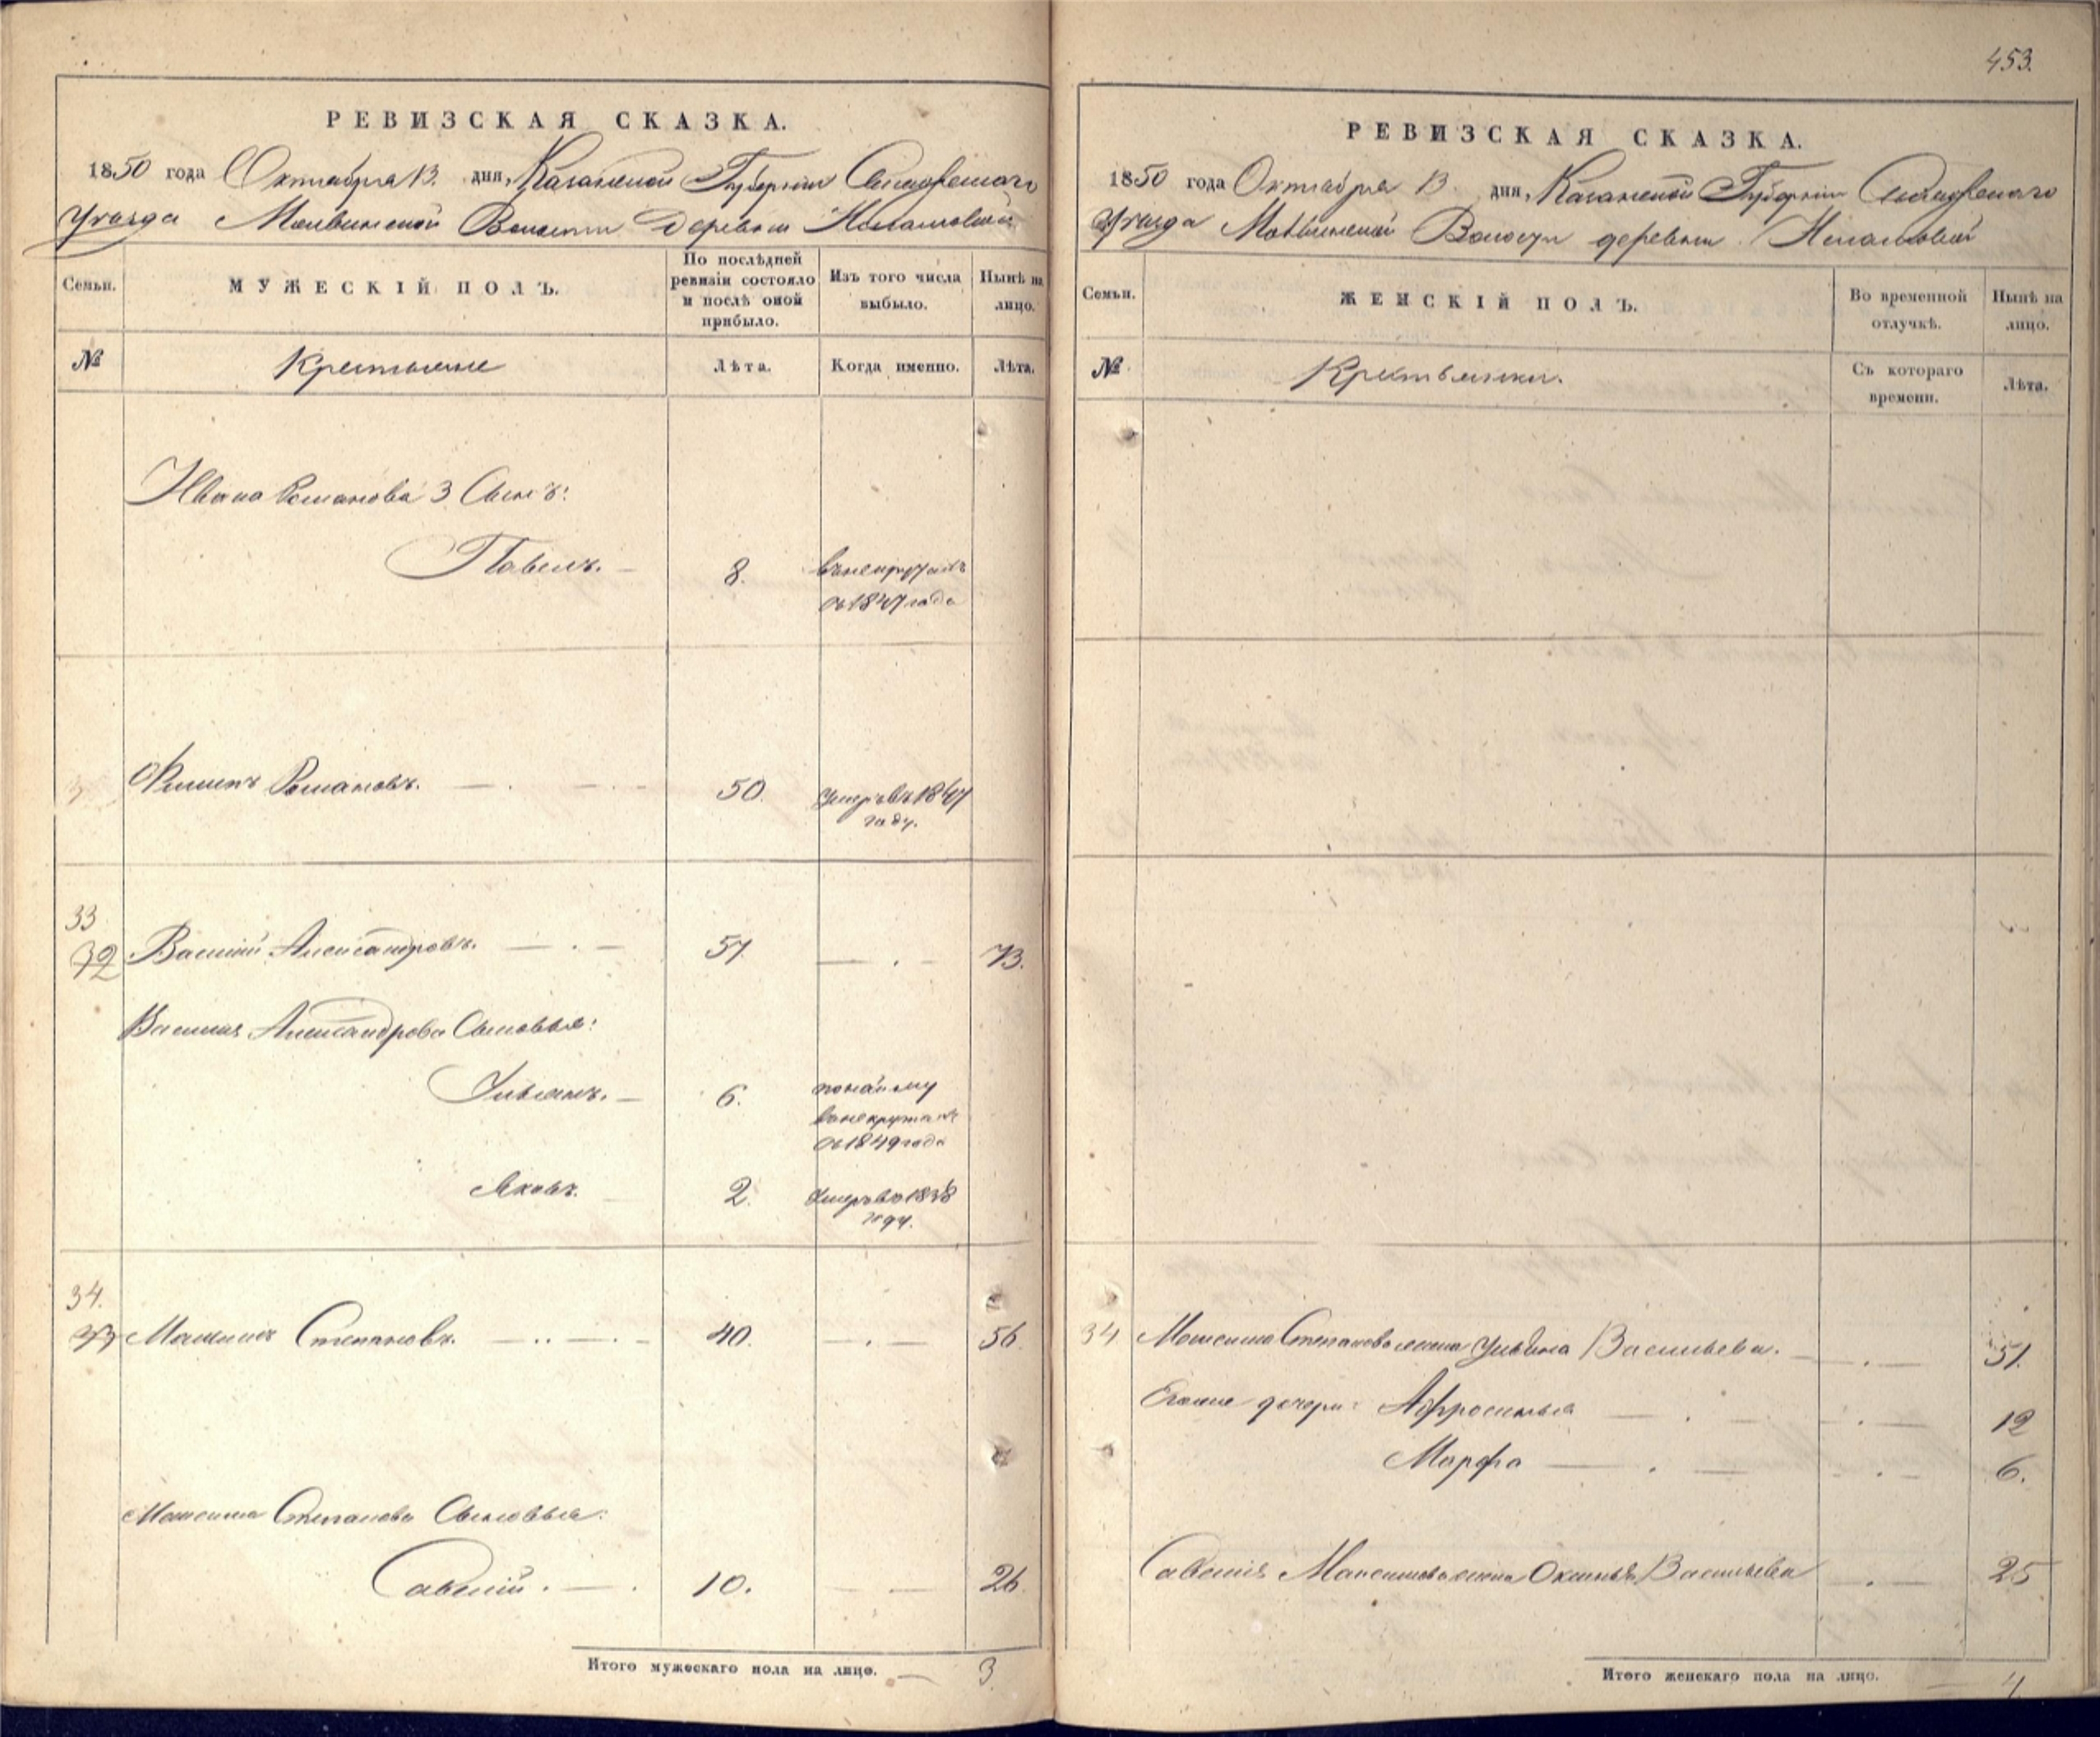 453.
РЕВИЗСКАЯ СКАЗКА.
1850 года Октября 13. дня, Казанской Губернiи
Уезда Волости Деревни
Семьи.
МУЖЕСКIЙ ПОЛЪ.
По послѣдней ревизiи состояло и послѣ оной прибыло.
Изъ того числа выбыло.
Нынѣ на лицо.
№
Крестьяне
Лѣта.
Когда именно.
Лѣта.
Ивана Романова 3 Сынъ:
Павелъ. 8. въ рекрутахъ
съ 1847 года
Филипъ Романовъ. 50. умеръ въ 1847
году.
33
32 Василiй Александровъ. 57. 73.
Василiя Александрова Сыновья:
Ульянъ. 6. по найму
въ рекрутахъ
съ 1849 года
Яковъ. 2. умеръ въ 1838
году.
34.
33 Максимъ Степановъ. 40. 56.
Максима Степанова Сыновья:
Савелiй. 10. 26.
Итого мужескаго пола на лицо. 3.
РЕВИЗСКАЯ СКАЗКА.
1850 года Октября 13. дня, Казанской Губернiи
Уезда Волости деревни
Семьи.
ЖЕНСКIЙ ПОЛЪ.
Во временной отлучкѣ.
Нынѣ на лицо.
№
Крестьянки.
Съ котораго времени.
Лѣта.
34 Максима Степанова жена Васильева. 51.
Его же дочери: Афросинья 12
Марфа 6.
Савелiя Максимова жена Оксинья Васильева 25
Итого женскаго пола на лицо. 4.